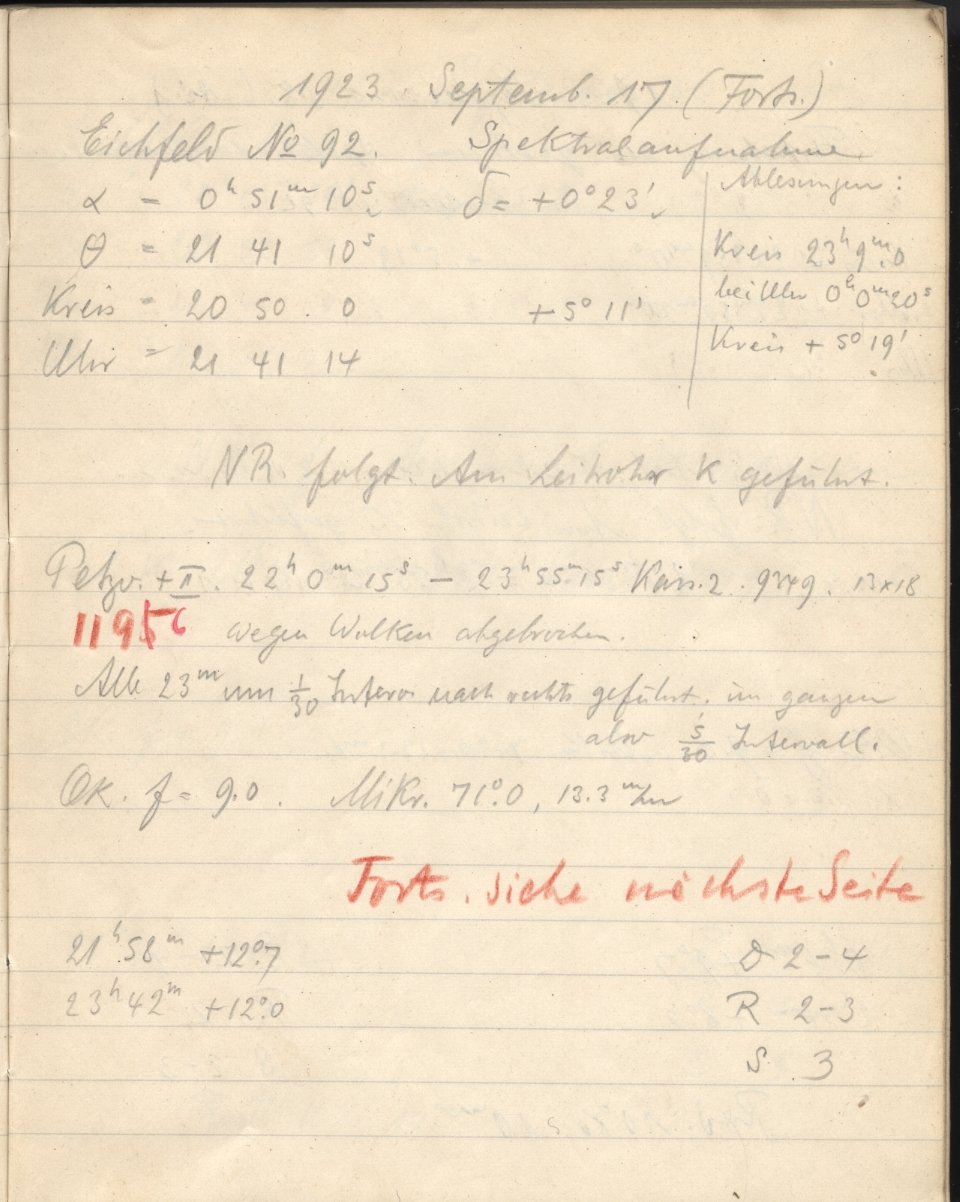 1923 Septemb. 17. (Forts.)
Eichfeld No 92. Spektralaufnahme
α = 0h 51m 10s δ = +0° 23'
Ablesungen:
θ = 21 41 10s
Kreis 23h 9m.0
Kreis = 20 50 . 0 + 5° 11'
bei Uhr 0h 0m 20s
Uhr = 21 41 14
Kreis + 5° 19'
NR. folgt. Am Leitrohr K geführt.
Petzv. + II. 22h 0m 15s – 23h 55m 15s Kass. 2 . 9349 . 13x18
1195 wegen Wolken abgebrochen.
Alle 23m um 1/30 Interv. nach rechts geführt. im ganzen
also 5/30 Intervall.
Ok. f = 9.0 . Mikr. 71°.0, 13.3 mm
Forts. siehe nächste Seite
21h 58m +12°.7 D 2–4
23h 42m +12°.0 R 2–3
S 3